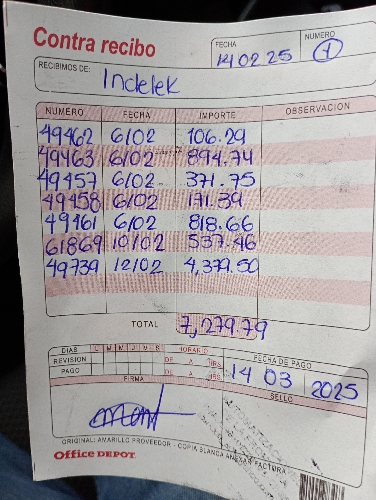 Contra recibo
FECHA
NUMERO
14 02 25
1
RECIBIMOS DE:
Indelek
NUMERO FECHA IMPORTE OBSERVACION
49462 6/02 106.29
49463 6/02 894.74
49457 6/02 371.75
49458 6/02 171.39
49461 6/02 818.66
61869 10/02 537.46
49739 12/02 4,379.50
TOTAL 7,279.79
DIAS L M M J V S HORARIO
REVISION DE A HRS.
PAGO DE A HRS.
FECHA DE PAGO
14 03 2025
FIRMA
SELLO
ORIGINAL: AMARILLO PROVEEDOR - COPIA BLANCA ANEXAR FACTURA
Office DEPOT